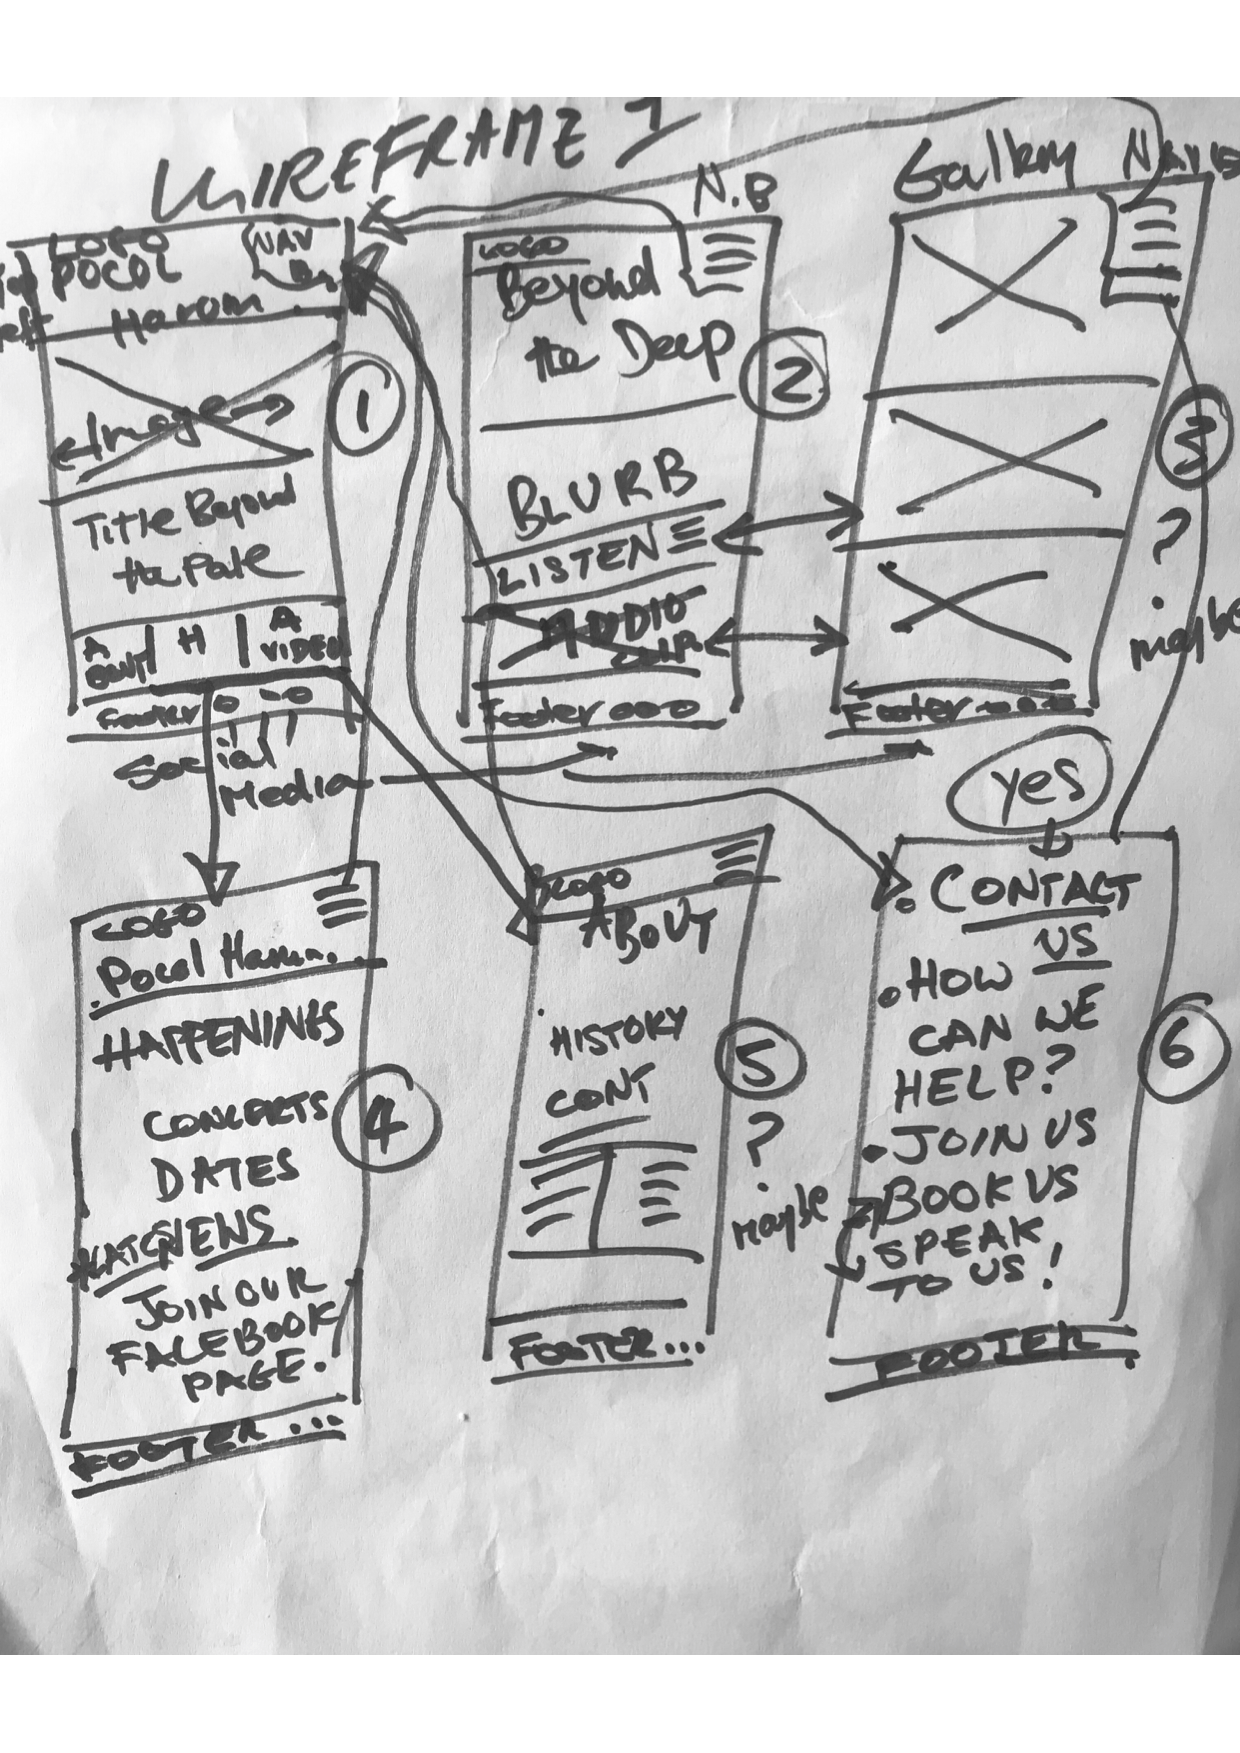 WIREFRAME 1
LOGO
POCOL
Harom...
NAV
←Image→
Title Beyond
the Pale
H
A
VIDEO
Footer
Social
Media
1
N.B
LOGO
Beyond
the Deep
2
BLURB
LISTEN
AUDIO
CLIP
Footer ooo
Gallery
3
?
maybe
Footer
Yes
LOGO
Pocol Harm...
HAPPENINGS
CONCERTS
DATES
4
NEWS
JOIN OUR
FACEBOOK
PAGE.
FOOTER ...
LOGO
ABOUT
HISTORY
CONT
5
?
maybe
FOOTER...
CONTACT
US
HOW
CAN WE
HELP?
JOIN US
BOOK US
SPEAK
TO US!
6
FOOTER